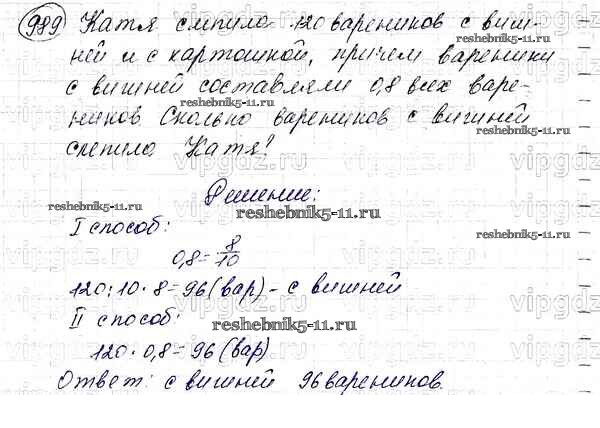 989 Катя слепила 120 вареников с виш-
ней и с картошкой, причем вареники
с вишней составляли 0,8 всех варе-
reshebnik5-11.ru
ников Сколько вареников с вишней
reshebnik5-11.ru
reshebnik5-11.ru
слепила Катя?
Решение:
reshebnik5-11.ru
reshebnik5-11.ru
I способ:
0,8=8/10
120:10·8=96(вар)-с вишней
II способ:
reshebnik5-11.ru
120·0,8=96(вар)
Ответ: с вишней 96 вареников.
reshebnik5-11.ru
reshebnik5-11.ru